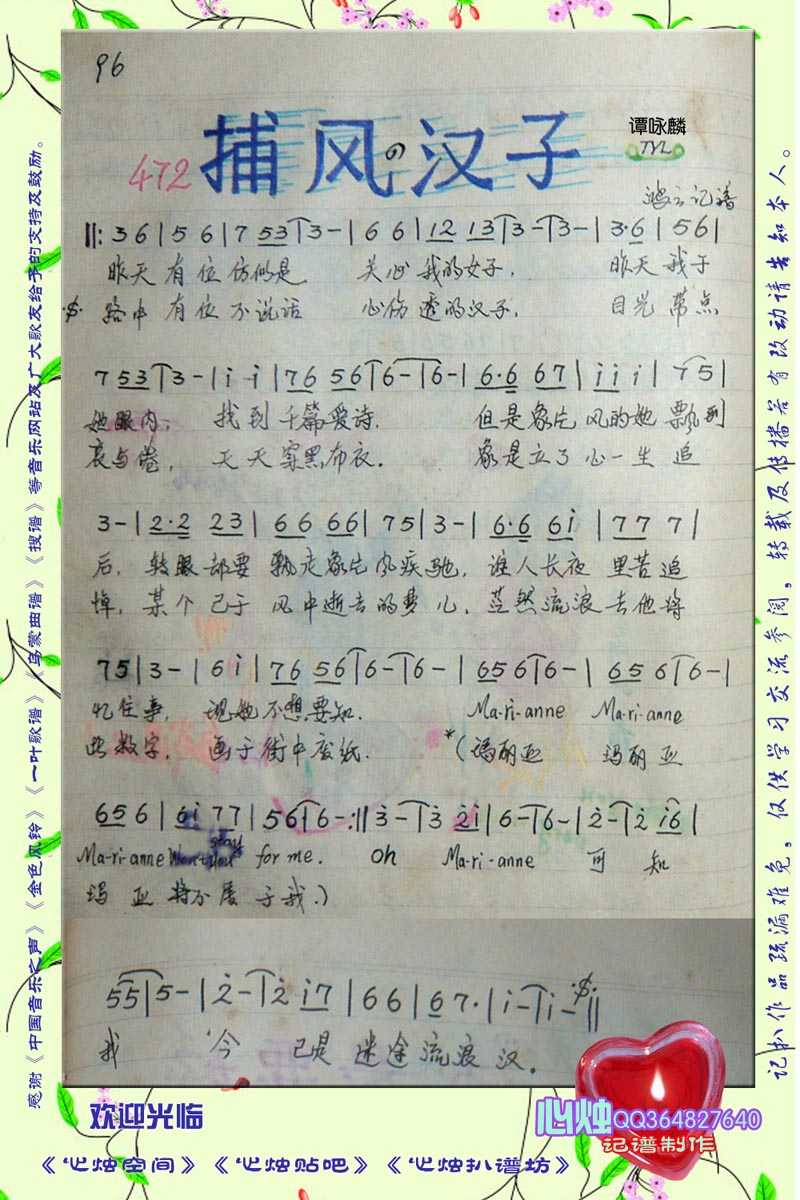 96
捕风の汉子
谭咏麟
TYL
472
鸿云记谱
‖: 3 6 | 5 6 | 7 53 | 3 - | 6 6 | 12 13 | 3 - | 3 - | 3·6 | 5 6 |
昨天有位仿似是 关心我的女子. 昨天我于
路中有位不说话 心伤透的汉子. 目光带点
7 53 | 3 - | i i | 76 56 | 6 - | 6 - | 6·6 67 | i i i | 7 5 |
她眼内, 找到千篇爱诗. 但是象片风的她飘到
哀与倦, 天天穿黑布衣. 象是立了心一生追
3 - | 2·2 23 | 66 66 | 75 | 3 - | 6·6 6i | 77 7 |
后, 转眼却要飘走象片风疾驰, 谁人长夜里苦追
悼, 某个已于风中逝去的梦儿, 茫然流浪去他将
75 | 3 - | 6 i | 76 56 | 6 - | 6 - | 65 6 | 6 - | 65 6 | 6 - |
忆往事, 现她不想要知. Ma-ri-anne Ma-ri-anne
此数字, 画于街中废纸. *(玛丽亚 玛丽亚
65 6 | 6i 77 | 56 | 6 - :‖ 3 - | 3 2i | 6 - | 6 - | 2 - | 2 i6 |
Ma-ri-anne Won't you stay for me. Oh Ma-ri-anne 可知
玛 亚 将不属于我.)
55 | 5 - | 2 - | 2 i7 | 6 6 | 6 7· | i - | i - ‖
我 今 已是迷途流浪汉.
感谢《中国音乐之声》《金色风铃》《一叶歌谱》《乌蒙曲谱》《搜谱》等音乐网站及广大歌友给予的支持及鼓励。
记扒作品疏漏难免，仅供学习交流参阅，转载及传播若有改动请告知本人。
欢迎光临
心烛QQ364827640
记谱制作
《心烛空间》《心烛贴吧》《心烛扒谱坊》